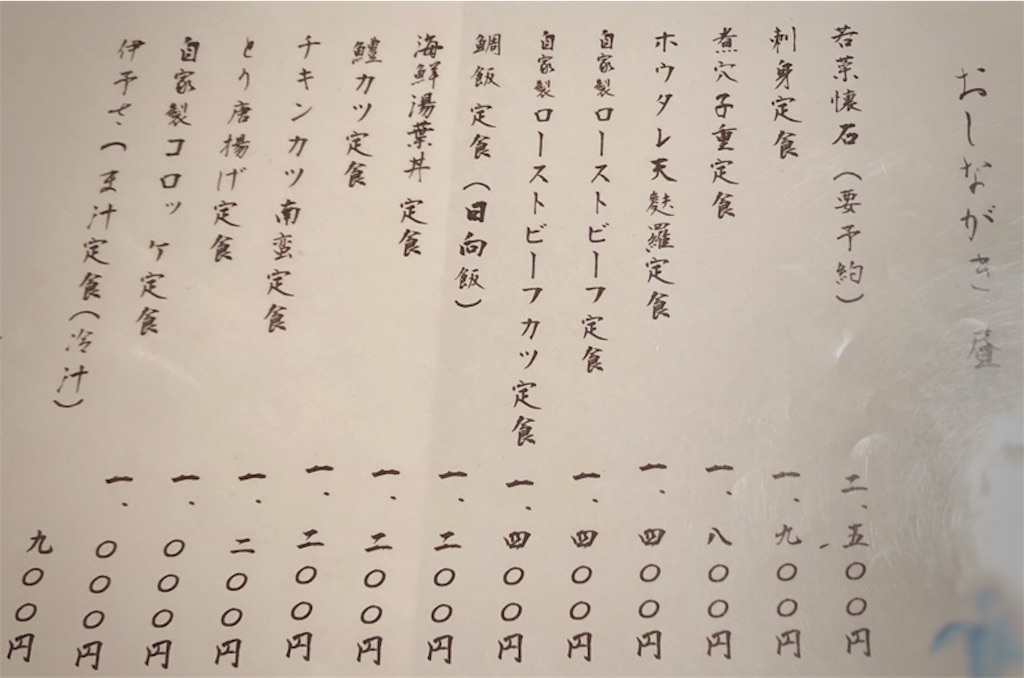 おしながき 昼
若菜懐石(要予約) 二、五〇〇円
刺身定食 一、九〇〇円
煮穴子重定食 一、八〇〇円
ホウタレ天麩羅定食 一、四〇〇円
自家製ローストビーフ定食 一、四〇〇円
自家製ローストビーフカツ定食 一、四〇〇円
鯛飯定食(日向飯) 一、二〇〇円
海鮮湯葉丼定食 一、二〇〇円
鱧カツ定食 一、二〇〇円
チキンカツ南蛮定食 一、二〇〇円
とり唐揚げ定食 一、〇〇〇円
自家製コロッケ定食 一、〇〇〇円
伊予さつま汁定食(冷汁) 九〇〇円